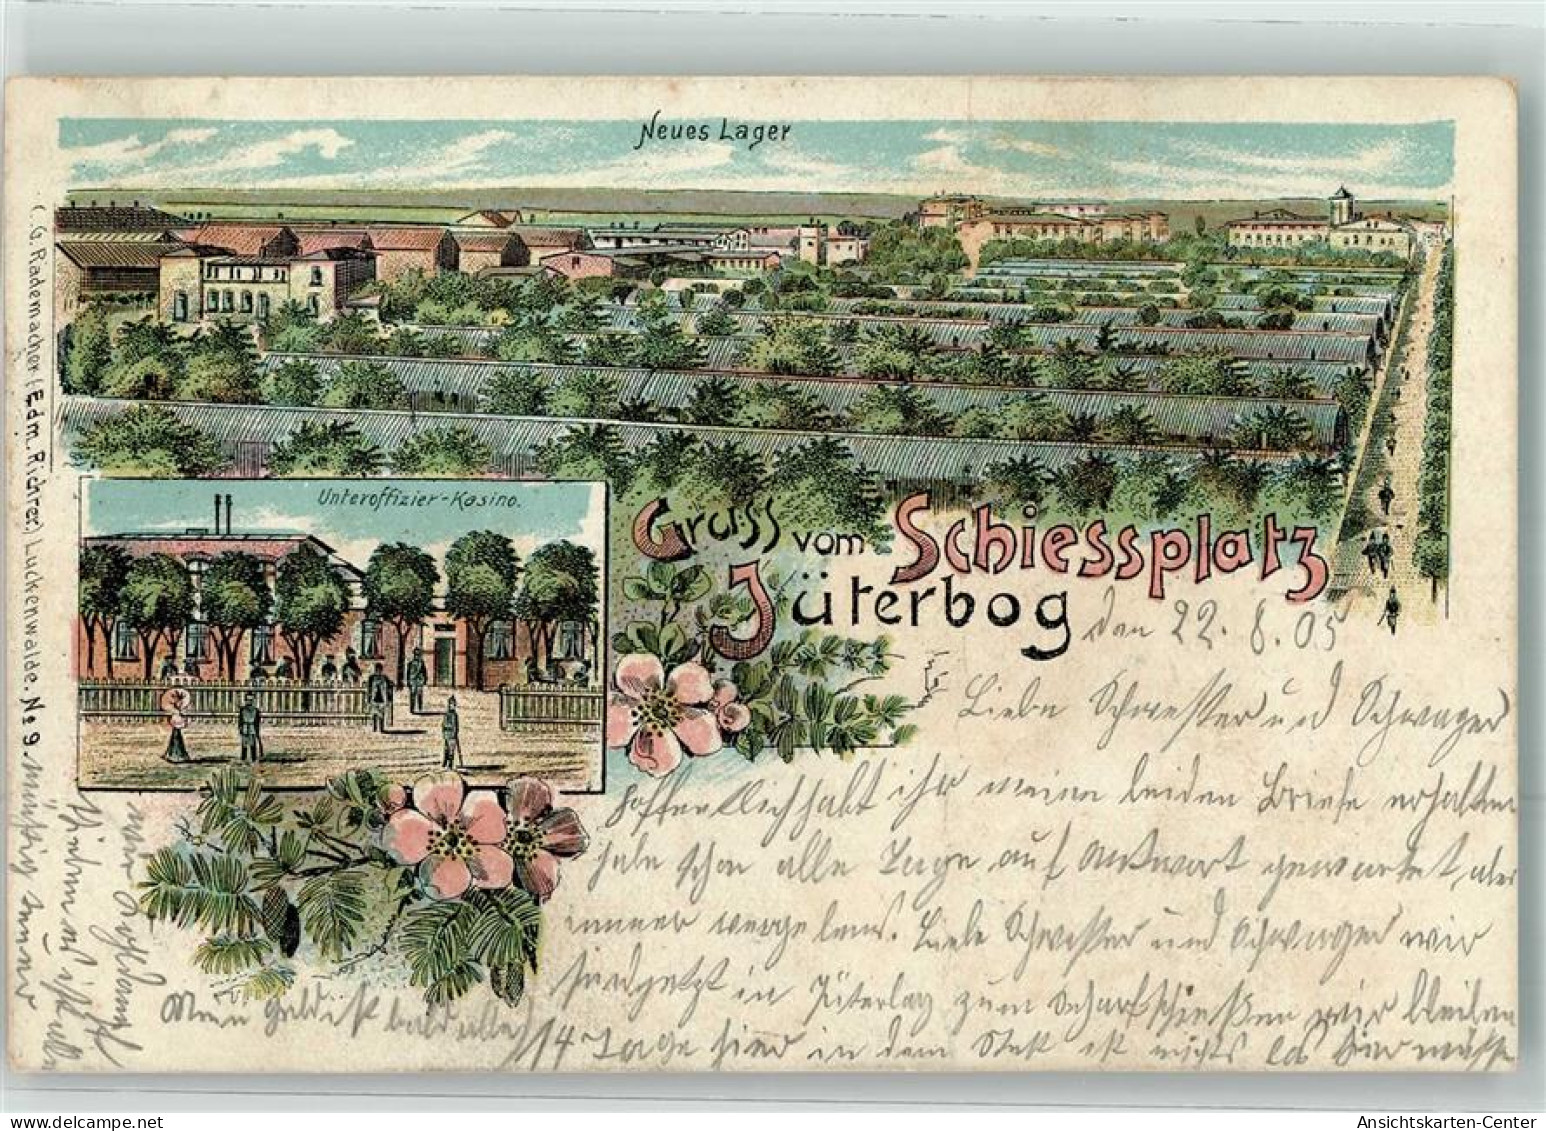 Neues Lager
Unteroffizier-Kasino.
Gruss vom Schiessplatz
Jüterbog
C. G. Rademacher (Edm. Richter) Luckenwalde. No 9.
den 22. 8. 05
Liebe Schwester und Schwager
hoffentlich habt ihr meinen beiden Briefe erhalten
habe schon alle Tage auf Antwort gewartet, aber
immer vergebens. Liebe Schwester und Schwager wir
sind jetzt in Jüterbog zum Scharfschießen wir bleiben
14 Tage hier in dem Nest ist nichts los hier
Mein Geld ist bald alle
Ansichtskarten-Center